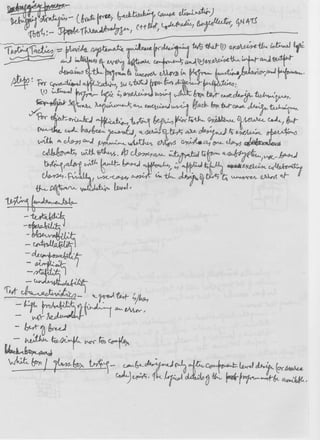 Debugging process
Debugging strategies - (brute force, backtracking cause elimination)
Tools:- Borland Thread analyzer, C++ test, CodeMedic, BugCollector, GNATS
Testing Tactics - provides systematic guidance for designing tests that (1) exercise the internal logic
and interfaces of every software component, and (2) exercise the input and output
domains of the program to uncover errors in program function, behavior, and performance.
Steps: For conventional applications, s/w is tested from two different perspectives.
(1) internal program logic is exercised using white box test case design techniques.
Software requirements are exercised using black box test case design techniques.
For object oriented applications, testing begins prior to the existence of source code, but
once the code has been generated, a series of tests are designed to exercise operations
within a class and examine whether errors exist as one class
collaborates with others. As classes are integrated to form a subsystem, use-based
testing, along with fault-based approaches, is applied to fully exercise collaborating
classes. Finally, use-cases assist in the design of tests to uncover errors at
the software validation level.
Testing fundamentals
- testability
- operability
- observability
- controllability
- decomposability
- simplicity
- stability
- understandability
Test characteristics - a good test is/has
- high probability of finding an error.
- not redundant
- best of breed
- neither too simple nor too complex
black-box and
White box / glass box testing - can be designed only after component level design (or source
code) exists. The logical details of the program must be available.